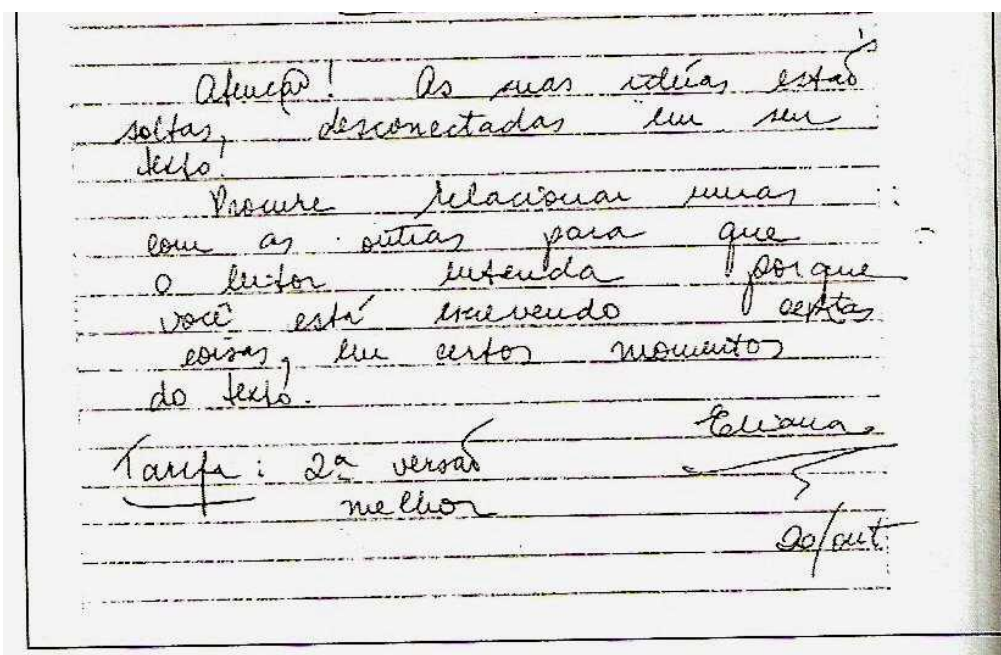 Atenção! As suas idéias estão
soltas, desconectadas em seu
texto!
Procure relacionar umas
com as outras para que
o leitor entenda porque
você está escrevendo certas
coisas, em certos momentos
do texto.
Eliana
Tarefa: 2ª versão
melhor
20/out